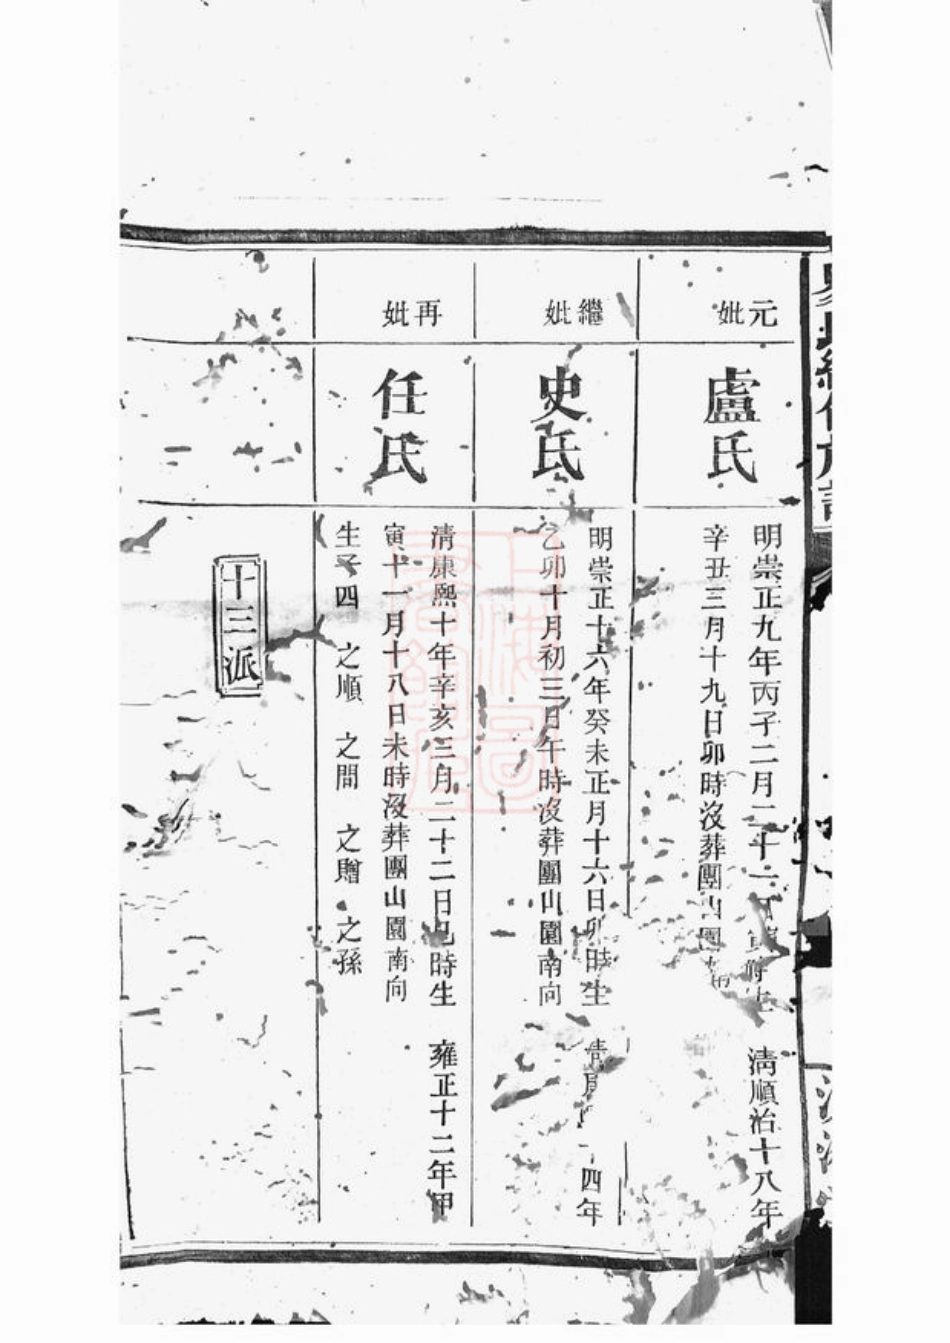 元妣
盧氏
明崇正九年丙子二月二十一日寅時生 清順治十八年
辛丑三月十九日卯時沒葬團山園南
繼妣
史氏
明崇正十六年癸未正月十六日卯時生 清康 四年
乙卯十月初三日午時沒葬團山園南向
再妣
任氏
清康熙十年辛亥三月二十二日巳時生 雍正十二年甲
寅十一月十八日未時沒葬團山園南向
生子四 之順 之間 之贈 之孫
十三派